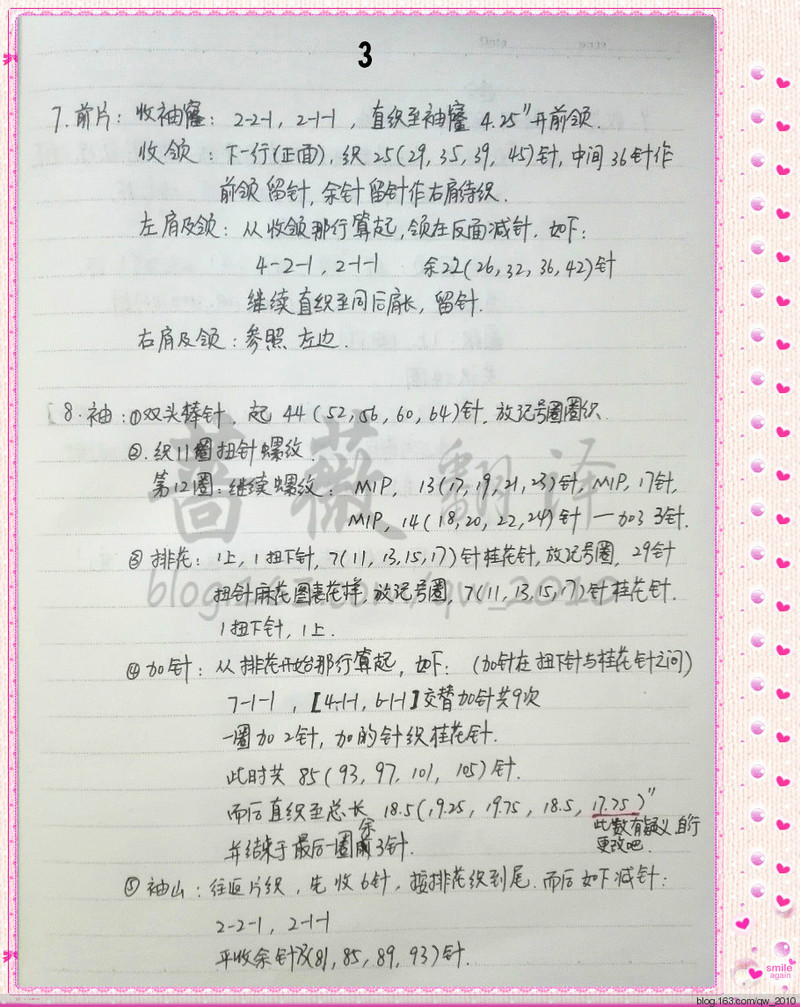 3
7. 前片: 收袖窿: 2-2-1, 2-1-1, 直织至袖窿 4.25"开前领.
收领: 下一行(正面), 织 25(29, 35, 39, 45)针, 中间36针作
前领留针, 余针留针作右肩待织.
左肩及领: 从收领那行算起, 领在反面减针. 如下:
4-2-1, 2-1-1 余22(26, 32, 36, 42)针
继续直织至同后肩长, 留针.
右肩及领: 参照左边.
8. 袖: ①双头棒针, 起 44(52, 56, 60, 64)针, 放记号圈圈织.
②. 织11圈扭针螺纹.
第12圈: 继续螺纹: M1P, 13(17, 19, 21, 23)针, M1P, 17针,
M1P, 14(18, 20, 22, 24)针 — 加3针.
③排花: 1上, 1扭下针, 7(11, 13, 15, 17)针桂花针, 放记号圈, 29针
扭针麻花图表花样, 放记号圈, 7(11, 13, 15, 17)针桂花针.
1扭下针, 1上.
④加针: 从排花开始那行算起, 如下: (加针在扭下针与桂花针之间)
7-1-1, [4-1-1, 6-1-1]交替加针共9次
一圈加2针, 加的针织桂花针.
此时共 85(93, 97, 101, 105)针.
而后直织至总长 18.5(19.25, 19.75, 18.5, 17.75)"
此数有疑义 自行
更改吧.
并结束于最后一圈余3针.
⑤袖山: 往返片织, 先收6针, 按排花织到尾. 而后如下减针:
2-2-1, 2-1-1
平收余针(81, 85, 89, 93)针.
蔷薇翻译
blog.163.com/qw_2010
smile
again
blog.163.com/qw_2010